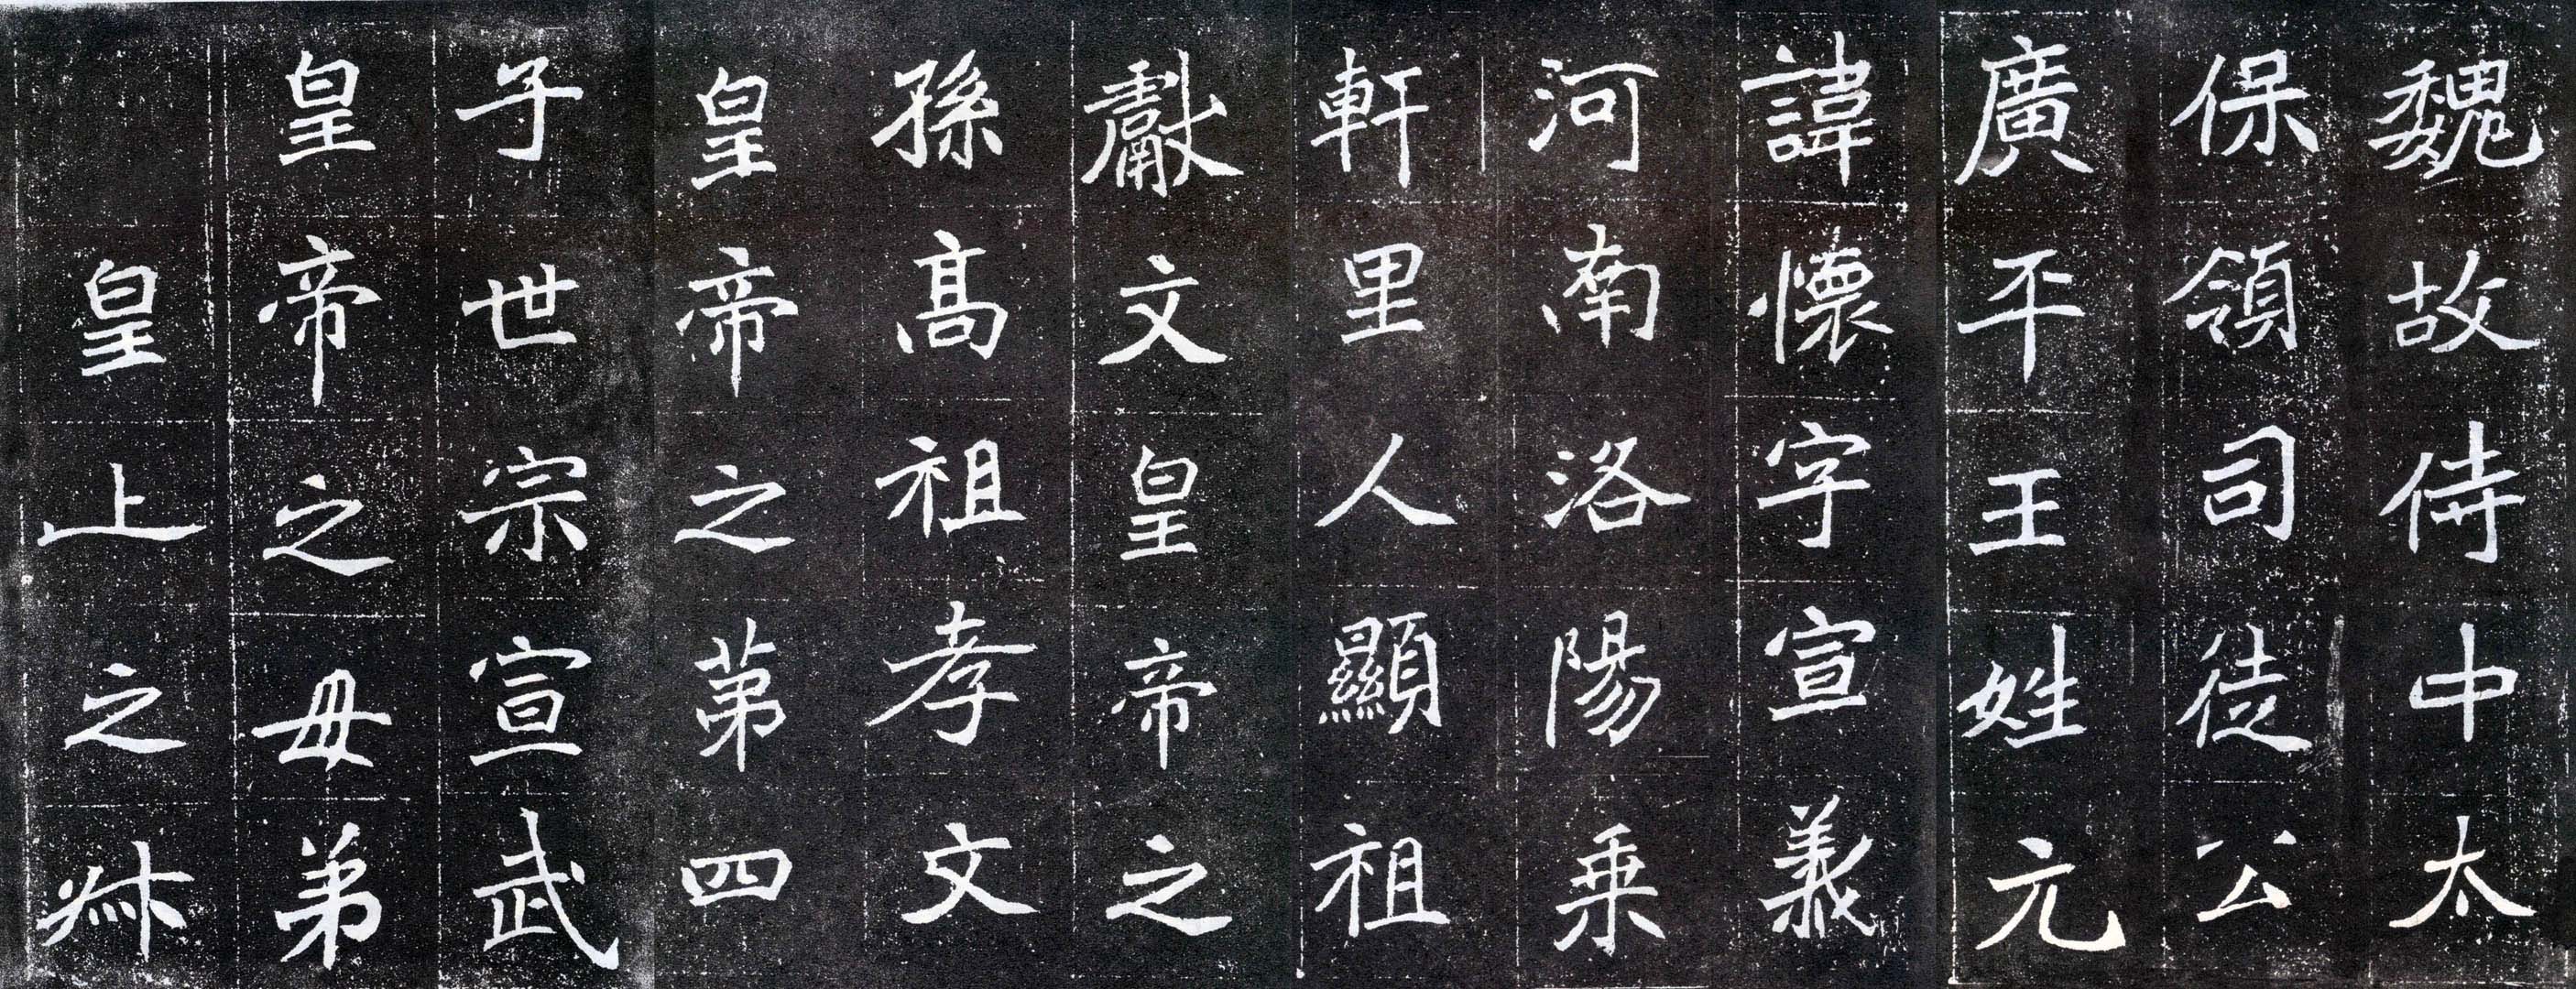 魏故侍中太
保領司徒公
廣平王姓元
諱懷字宣義
河南洛陽乗
軒里人顯祖
獻文皇帝之
孫高祖孝文
皇帝之第四
子世宗宣武
皇帝之母弟
皇上之叔